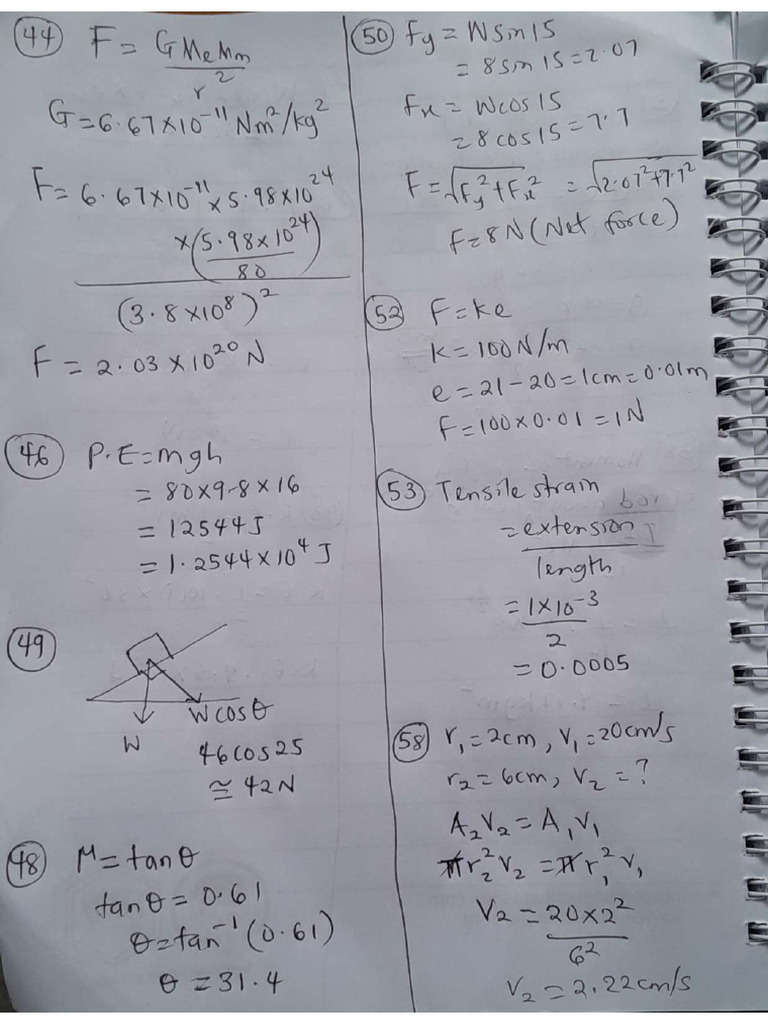 44 F = GMeMm
r²
G = 6.67×10⁻¹¹ Nm²/kg²
F = 6.67×10⁻¹¹ × 5.98×10²⁴
×(5.98×10²⁴)
80
(3.8×10⁸)²
F = 2.03×10²⁰ N
46 P.E = mgh
= 80×9.8×16
= 12544J
= 1.2544×10⁴ J
49
W
Wcosθ
46cos25
≅ 42N
48 M = tanθ
tanθ = 0.61
θ = tan⁻¹(0.61)
θ = 31.4
50 Fy = Wsin15
= 8sin15 = 2.07
Fx = Wcos15
= 8cos15 = 7.7
F = √Fy²+Fx² = √2.07²+7.7²
F = 8N (Net force)
52 F = ke
k = 100N/m
e = 21-20 = 1cm = 0.01m
F = 100×0.01 = 1N
53 Tensile strain
= extension
length
= 1×10⁻³
2
= 0.0005
58 r₁ = 2cm, V₁ = 20cm/s
r₂ = 6cm, V₂ = ?
A₂V₂ = A₁V₁
πr₂²V₂ = πr₁²V₁
V₂ = 20×2²
6²
V₂ = 2.22cm/s